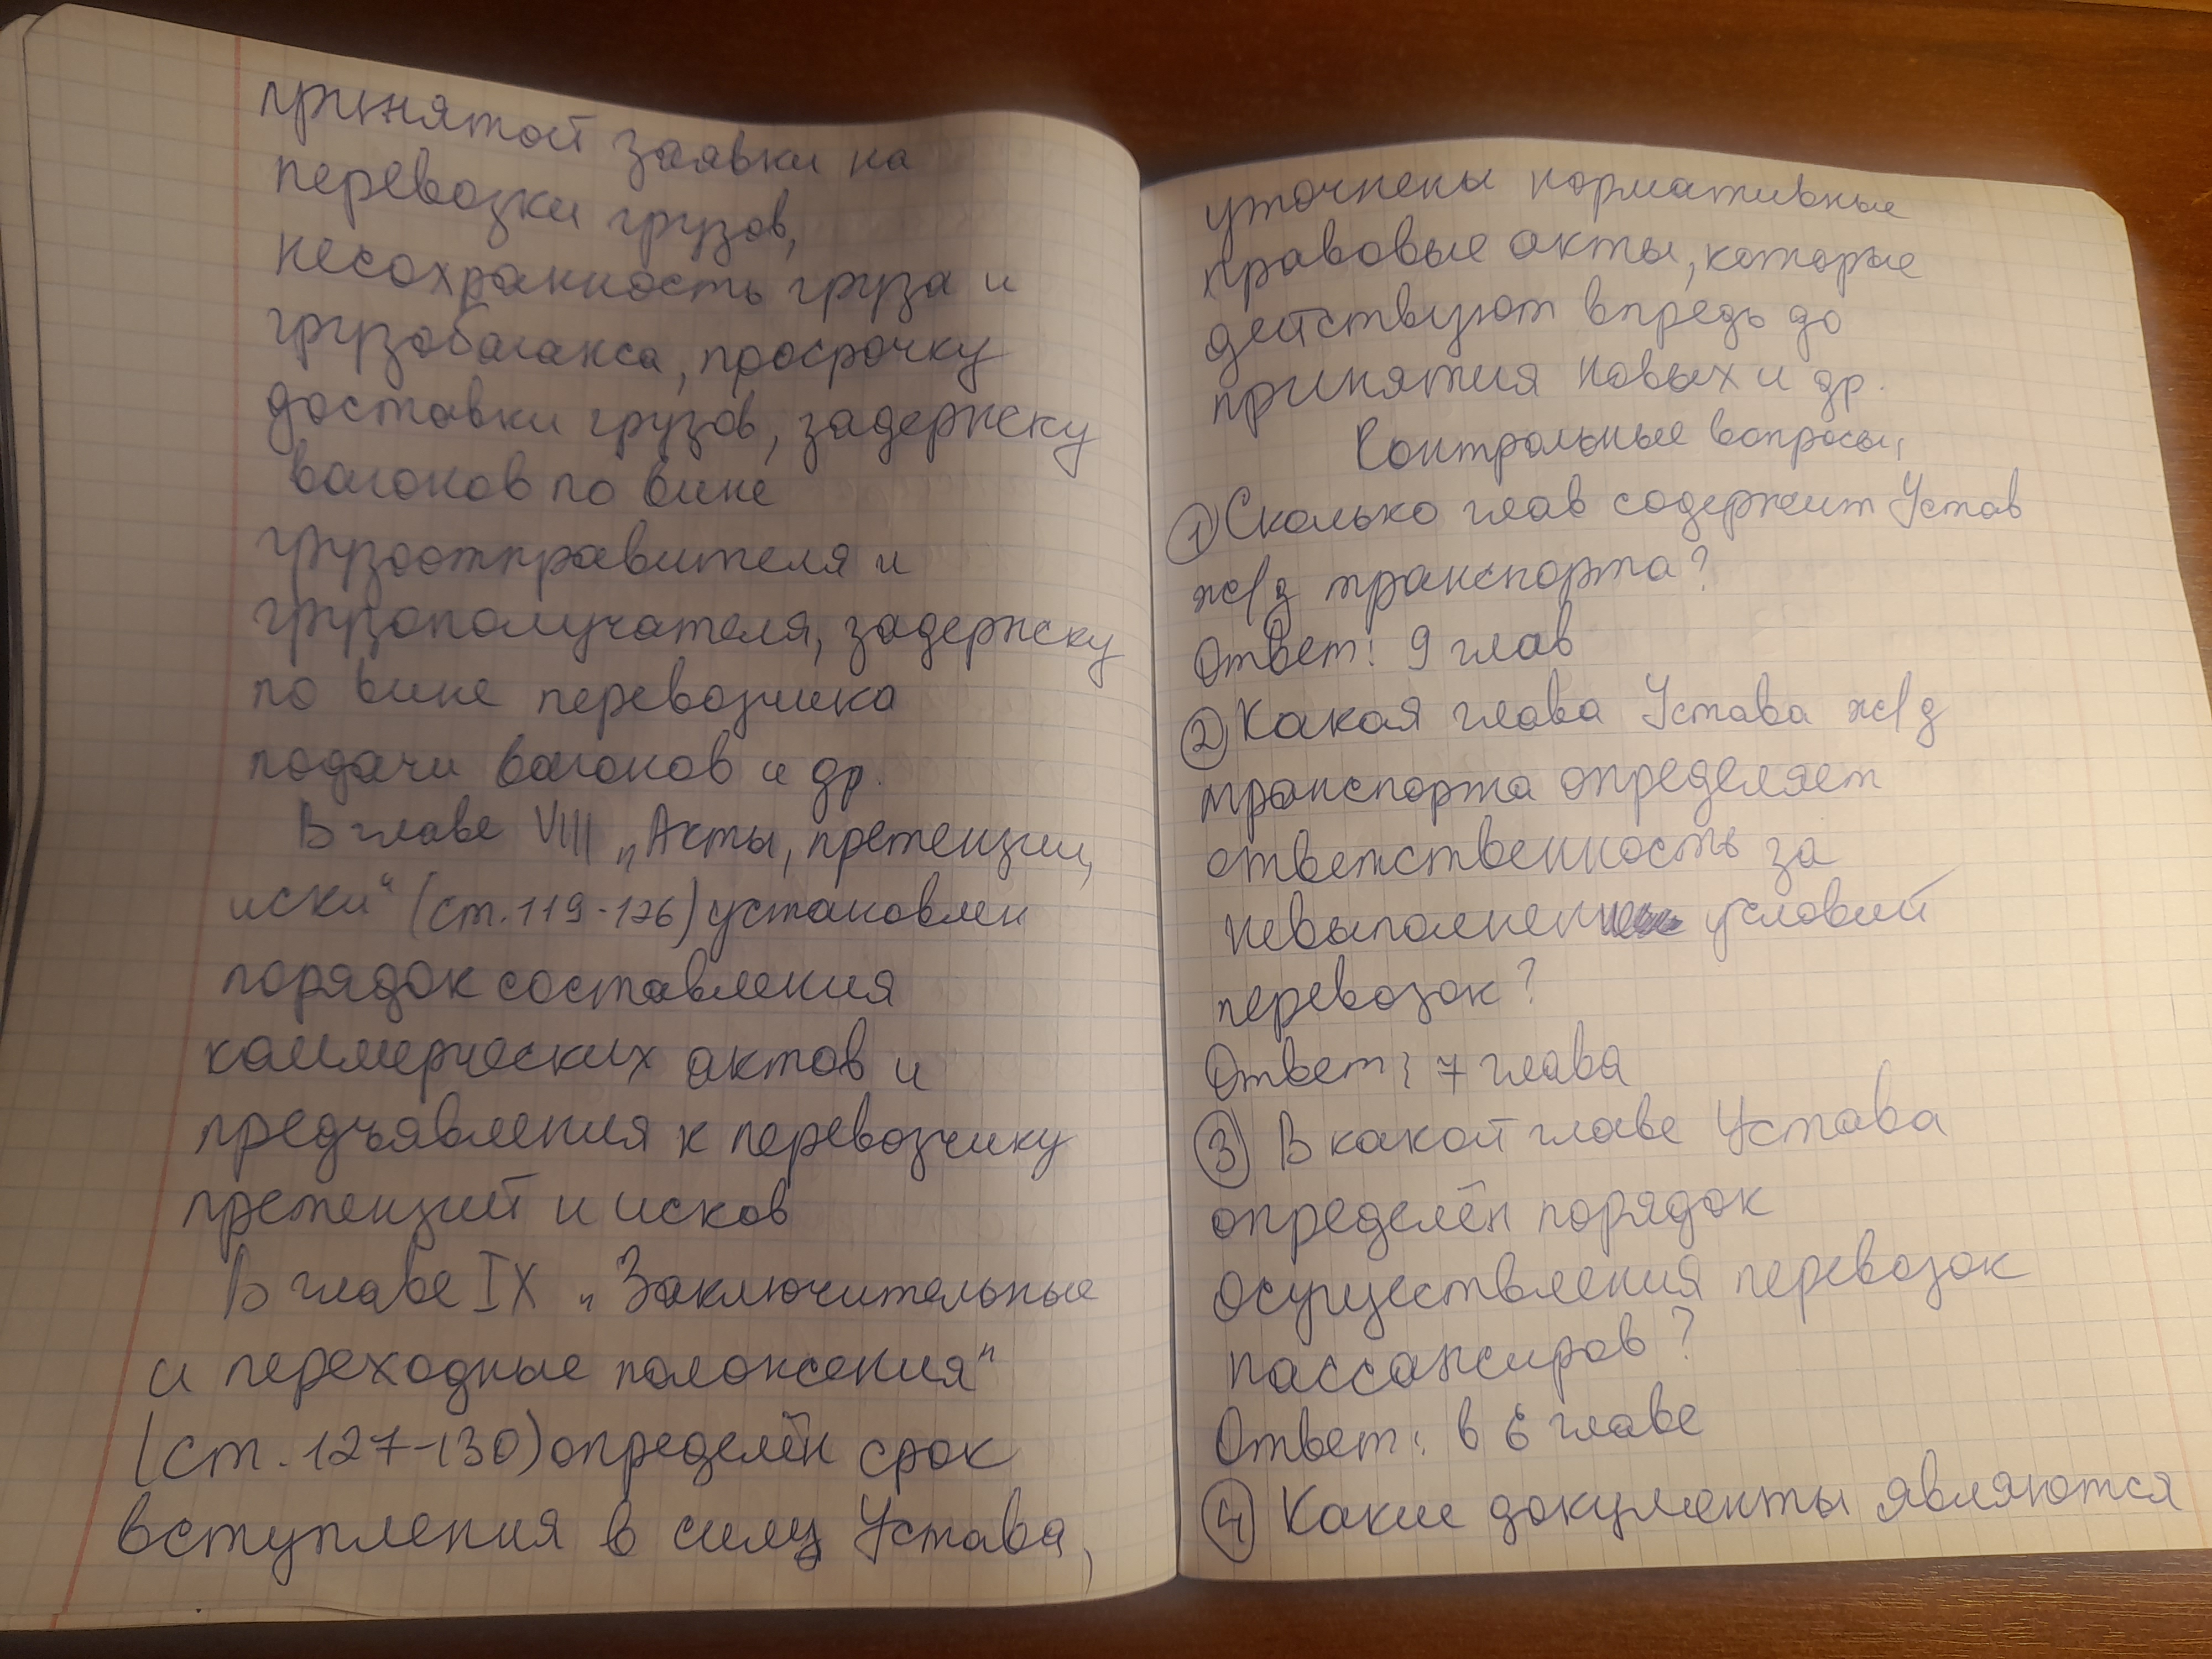 принятой заявки на
перевозки грузов,
несохранность груза и
грузобагажа, просрочку
доставки грузов, задержку
вагонов по вине
грузоотправителя и
грузополучателя, задержку
по вине перевозчика
подачи вагонов и др.
В главе VIII „Акты, претензии,
иски“ (ст. 119-126) установлен
порядок составления
коммерческих актов и
предъявления к перевозчику
претензий и исков
В главе IX „Заключительные
и переходные положения“
(ст. 127-130) определён срок
вступления в силу Устава,
уточнены нормативные
правовые акты, которые
действуют впредь до
принятия новых и др.
Контрольные вопросы:
① Сколько глав содержит Устав
ж/д транспорта?
Ответ: 9 глав
② Какая глава Устава ж/д
транспорта определяет
ответственность за
условий
перевозок?
Ответ: 7 глава
③ В какой главе Устава
определён порядок
осуществления перевозок
пассажиров?
Ответ: в 6 главе
④ Какие документы являются